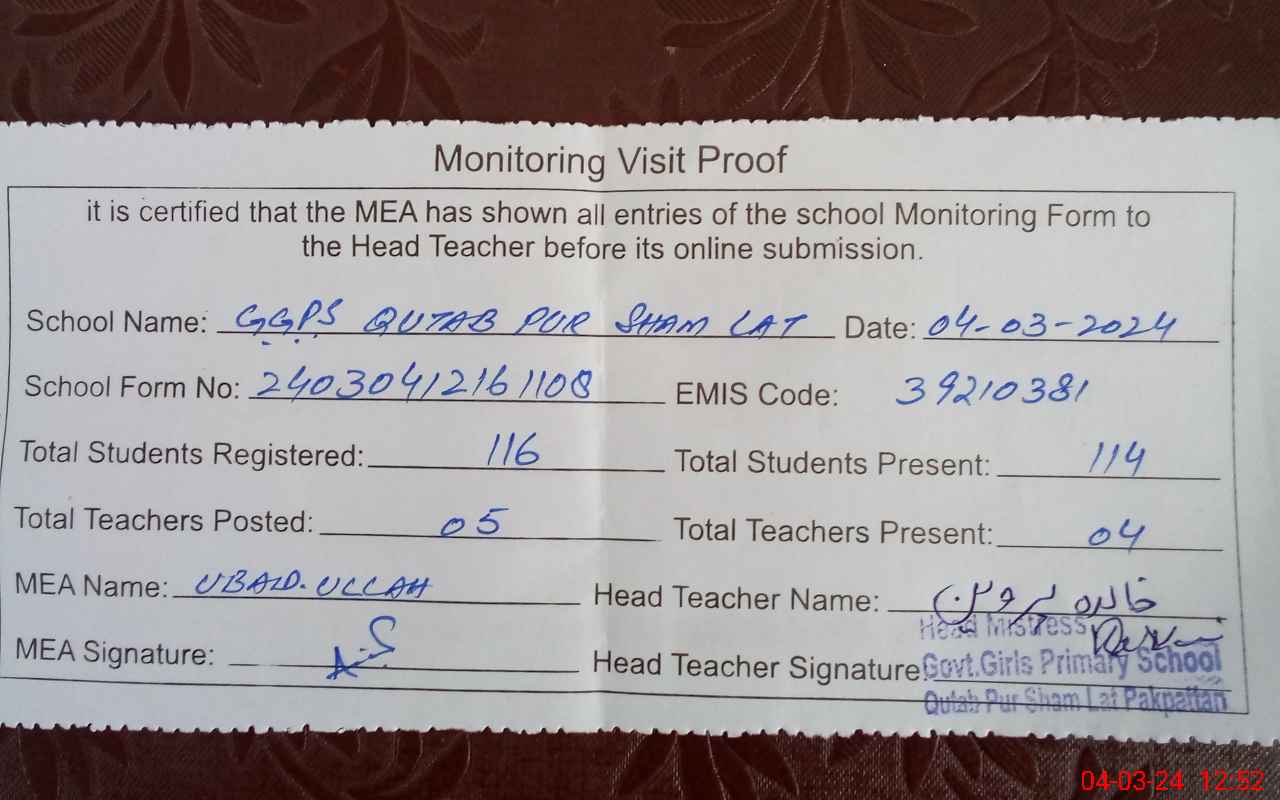 Monitoring Visit Proof
it is certified that the MEA has shown all entries of the school Monitoring Form to
the Head Teacher before its online submission.
School Name: GGPS QUTAB PUR SHAM LAT Date: 04-03-2024
School Form No: 24030412161108 EMIS Code: 39210381
Total Students Registered: 116 Total Students Present: 114
Total Teachers Posted: 05 Total Teachers Present: 04
MEA Name: UBAID.ULLAH Head Teacher Name: خالدہ پروین
Head Mistress
MEA Signature: Head Teacher Signature
Govt.Girls Primary School
Qutab Pur Sham Lat Pakpattan
04-03-24 12:52